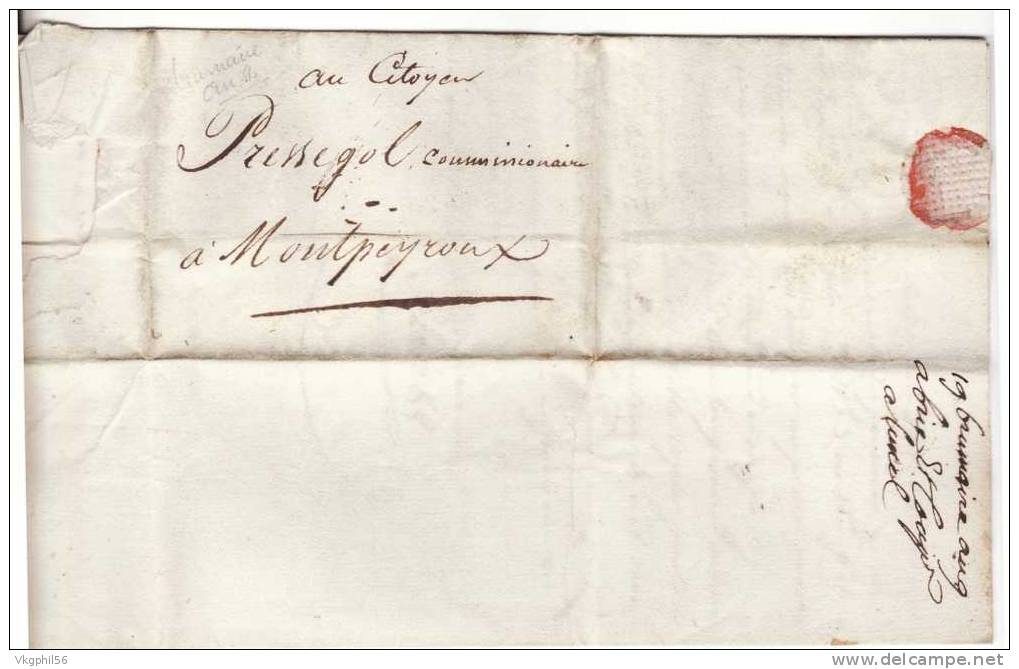 brumaire
an 9
au Citoyen
Pressegol, commissionaire
à Montpeyroux
19 brumaire an 9
a lunel
Vkgphil56
delcampe.net